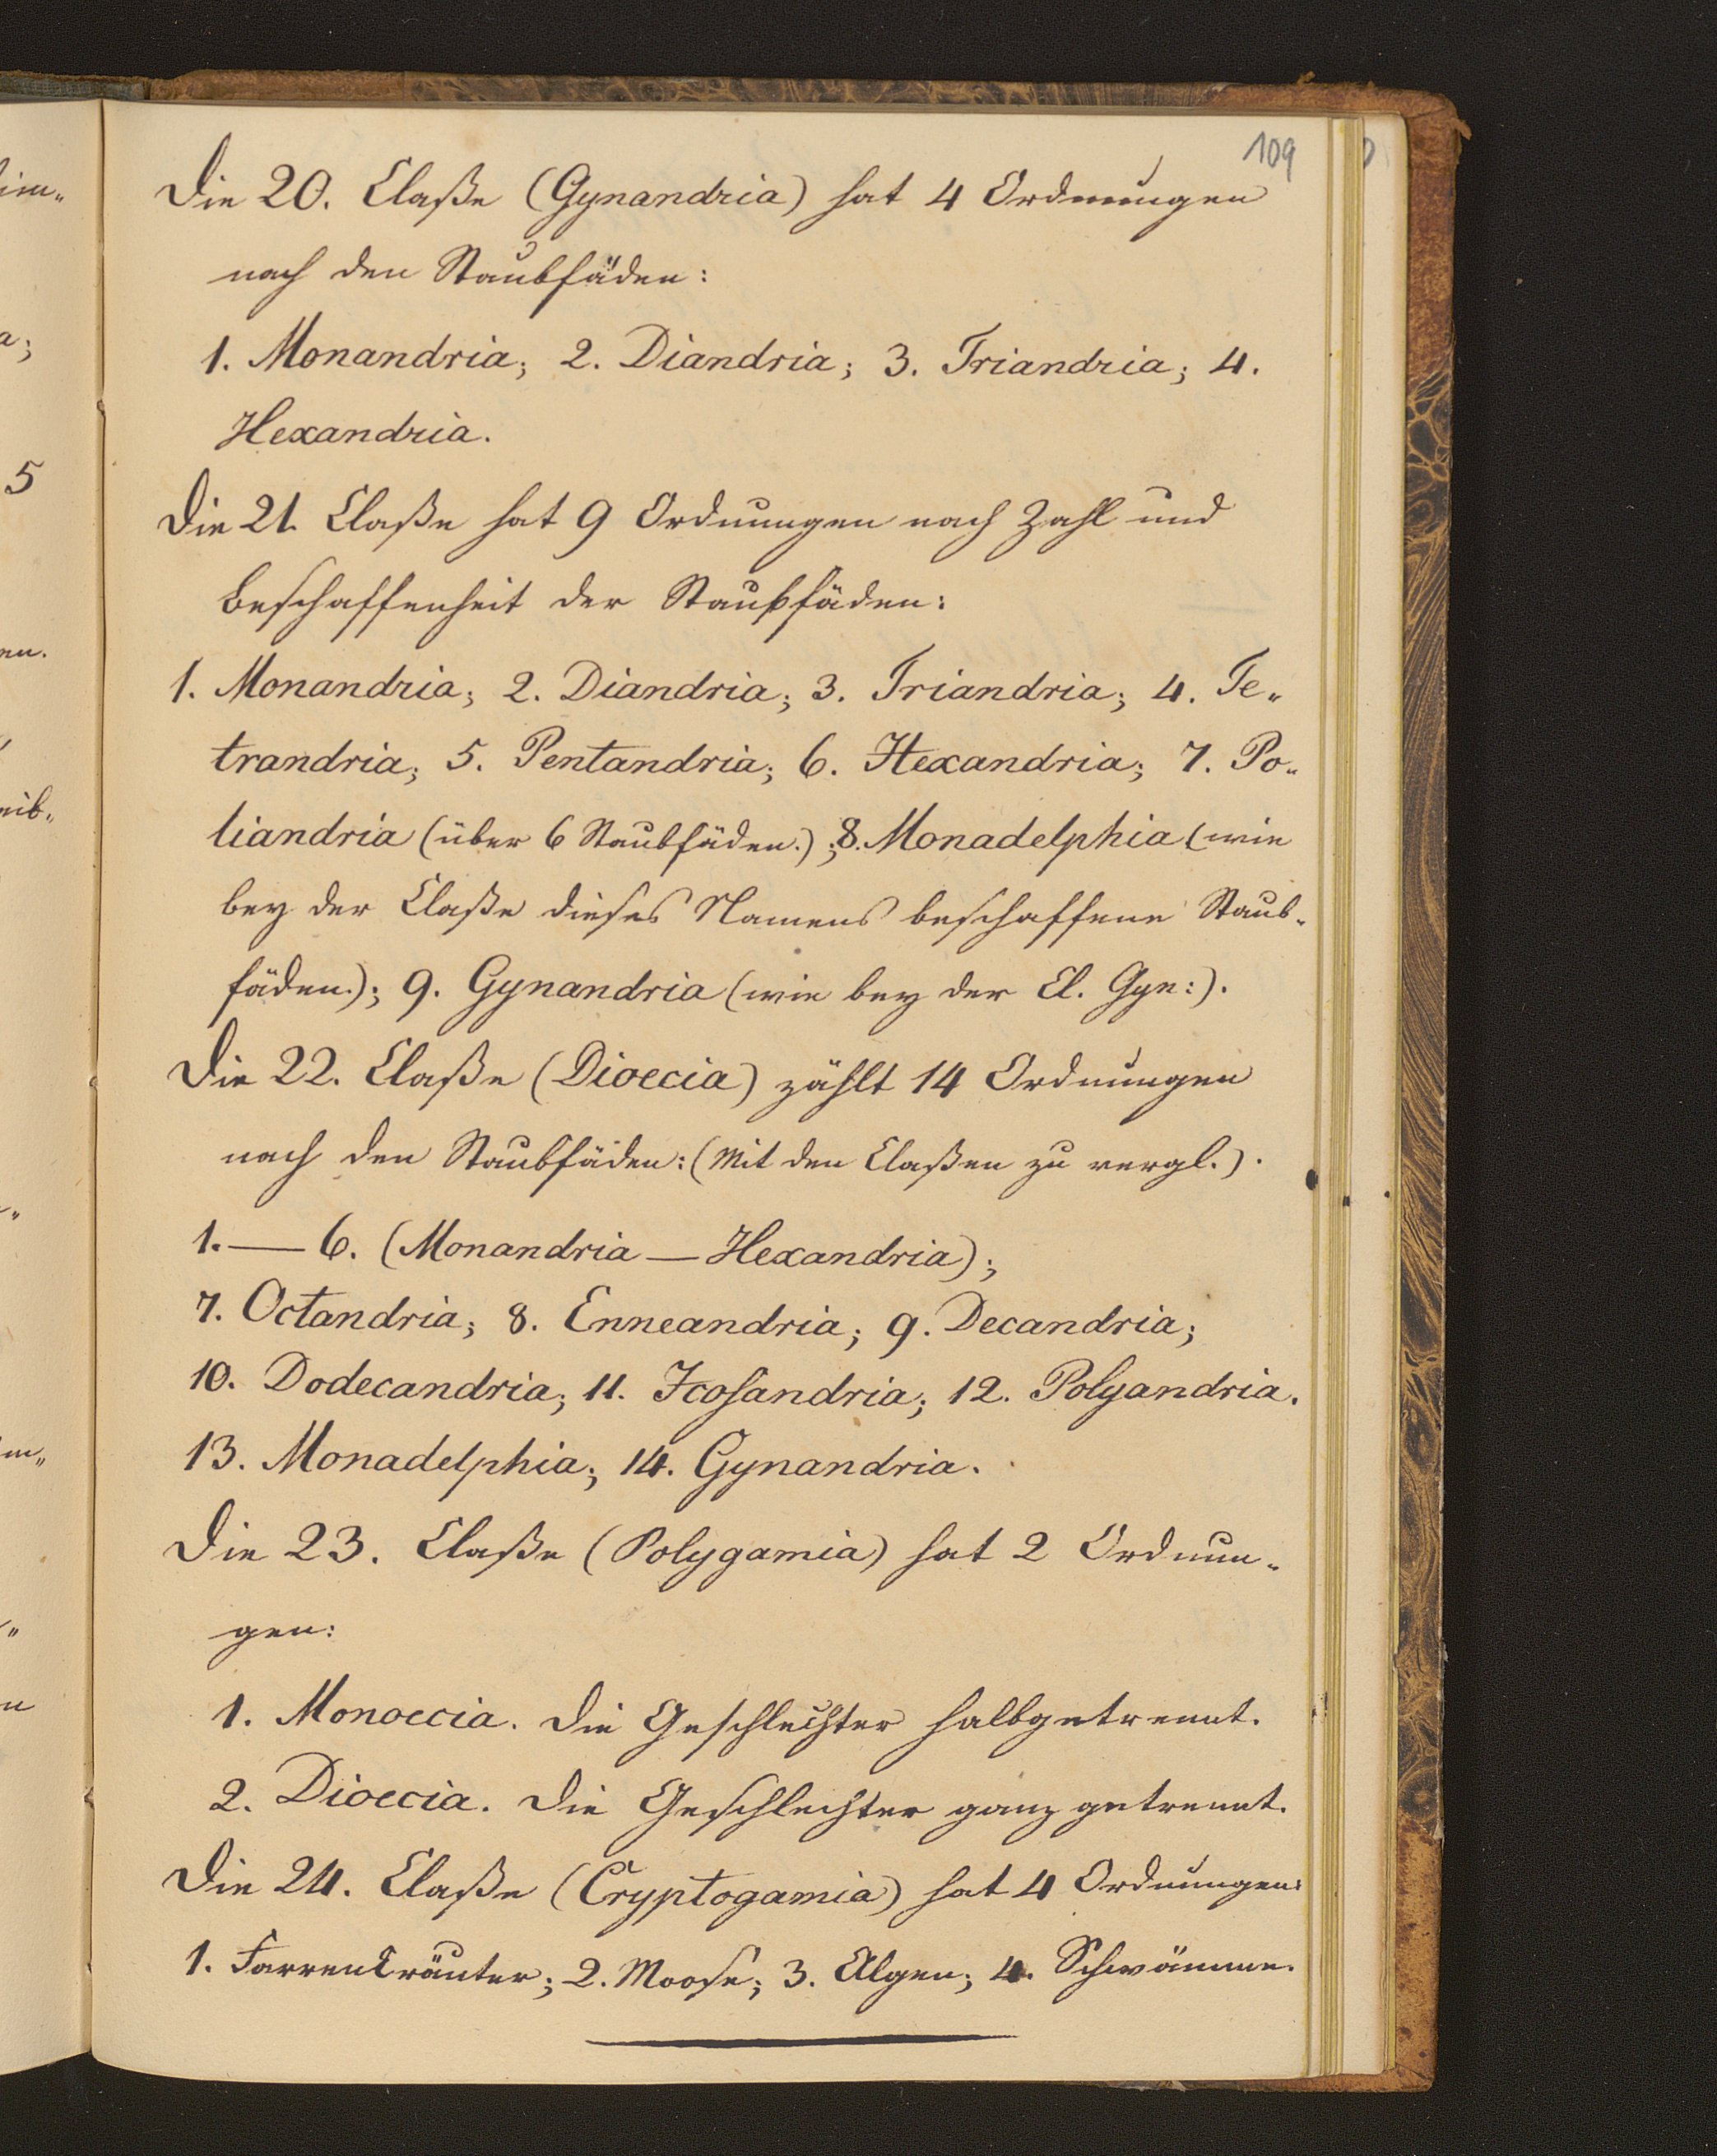 109
Die 20. Claße (Gynandria) hat 4 Ordnungen
nach den Staubfäden:
1. Monandria; 2. Diandria; 3. Triandria; 4.
Hexandria.
Die 21. Claße hat 9 Ordnungen nach Zahl und
Beschaffenheit der Staubfäden:
1. Monandria; 2. Diandria; 3. Triandria; 4. Te„
trandria; 5. Pentandria; 6. Hexandria; 7. Po„
liandria (über 6 Staubfäden.); 8. Monadelphia (wie
bey der Claße dieses Namens beschaffene Staub„
fäden.); 9. Gynandria (wie bey der Cl. Gyn:).
Die 22. Claße (Dioecia) zählt 14 Ordnungen
nach den Staubfäden: (Mit den Claßen zu vergl.).
1.— 6. (Monandria — Hexandria);
7. Octandria; 8. Enneandria; 9. Decandria;
10. Dodecandria; 11. Icosandria; 12. Polyandria.
13. Monadelphia; 14. Gynandria.
Die 23. Claße (Polygamia) hat 2 Ordnun„
gen:
1. Monoecia. Die Geschlechter halbgetrennt.
2. Dioecia. Die Geschlechter ganz getrennt.
Die 24. Claße (Cryptogamia) hat 4 Ordnungen:
1. Farrenkräuter; 2. Moose; 3. Algen; 4. Schwämme.